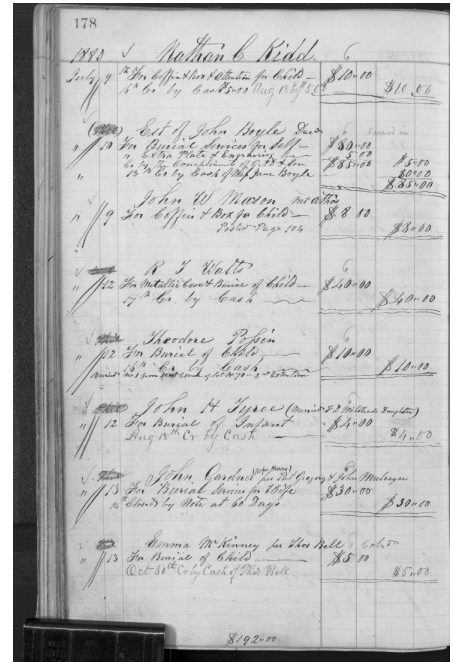 178
1883 Nathan C. Kidd
July 9 For Coffin & Box & Attention for Child $10.00
16th Cr by Cash $5.00 Aug 18th $10.00
Est of John Boyle Decd
" 10 For Burial Services for Self $80.00
" Extra Plate & Engraving 5.00
Cr by Compliment $85.00 $5.00
" 13th Cr by Cash of Jane Boyle 80.00
$85.00
John W Mason
" 9 For Coffin & Box for Child $8.00
Posted Page 104 $8.00
R T Watts
" 12 For Metallic Case & Burial of Child $40.00
17th Cr by Cash $40.00
Theodore Possin
" 12 For Burial of Child $10.00
16th Cr by Cash $10.00
John H Tyree (Married Daughter)
" 12 For Burial of Infant $4.00
Aug 18th Cr by Cash $4.00
John Gardner per Pat Gregory & John
" 13 For Burial Services for Wife $30.00
" 14th Closed by Note at 60 Days $30.00
Emma McKinney per Thos Bell Cold
" 13 For Burial of Child $5.00
Oct 30th Cr by Cash of Thos Bell $5.00
$192.00